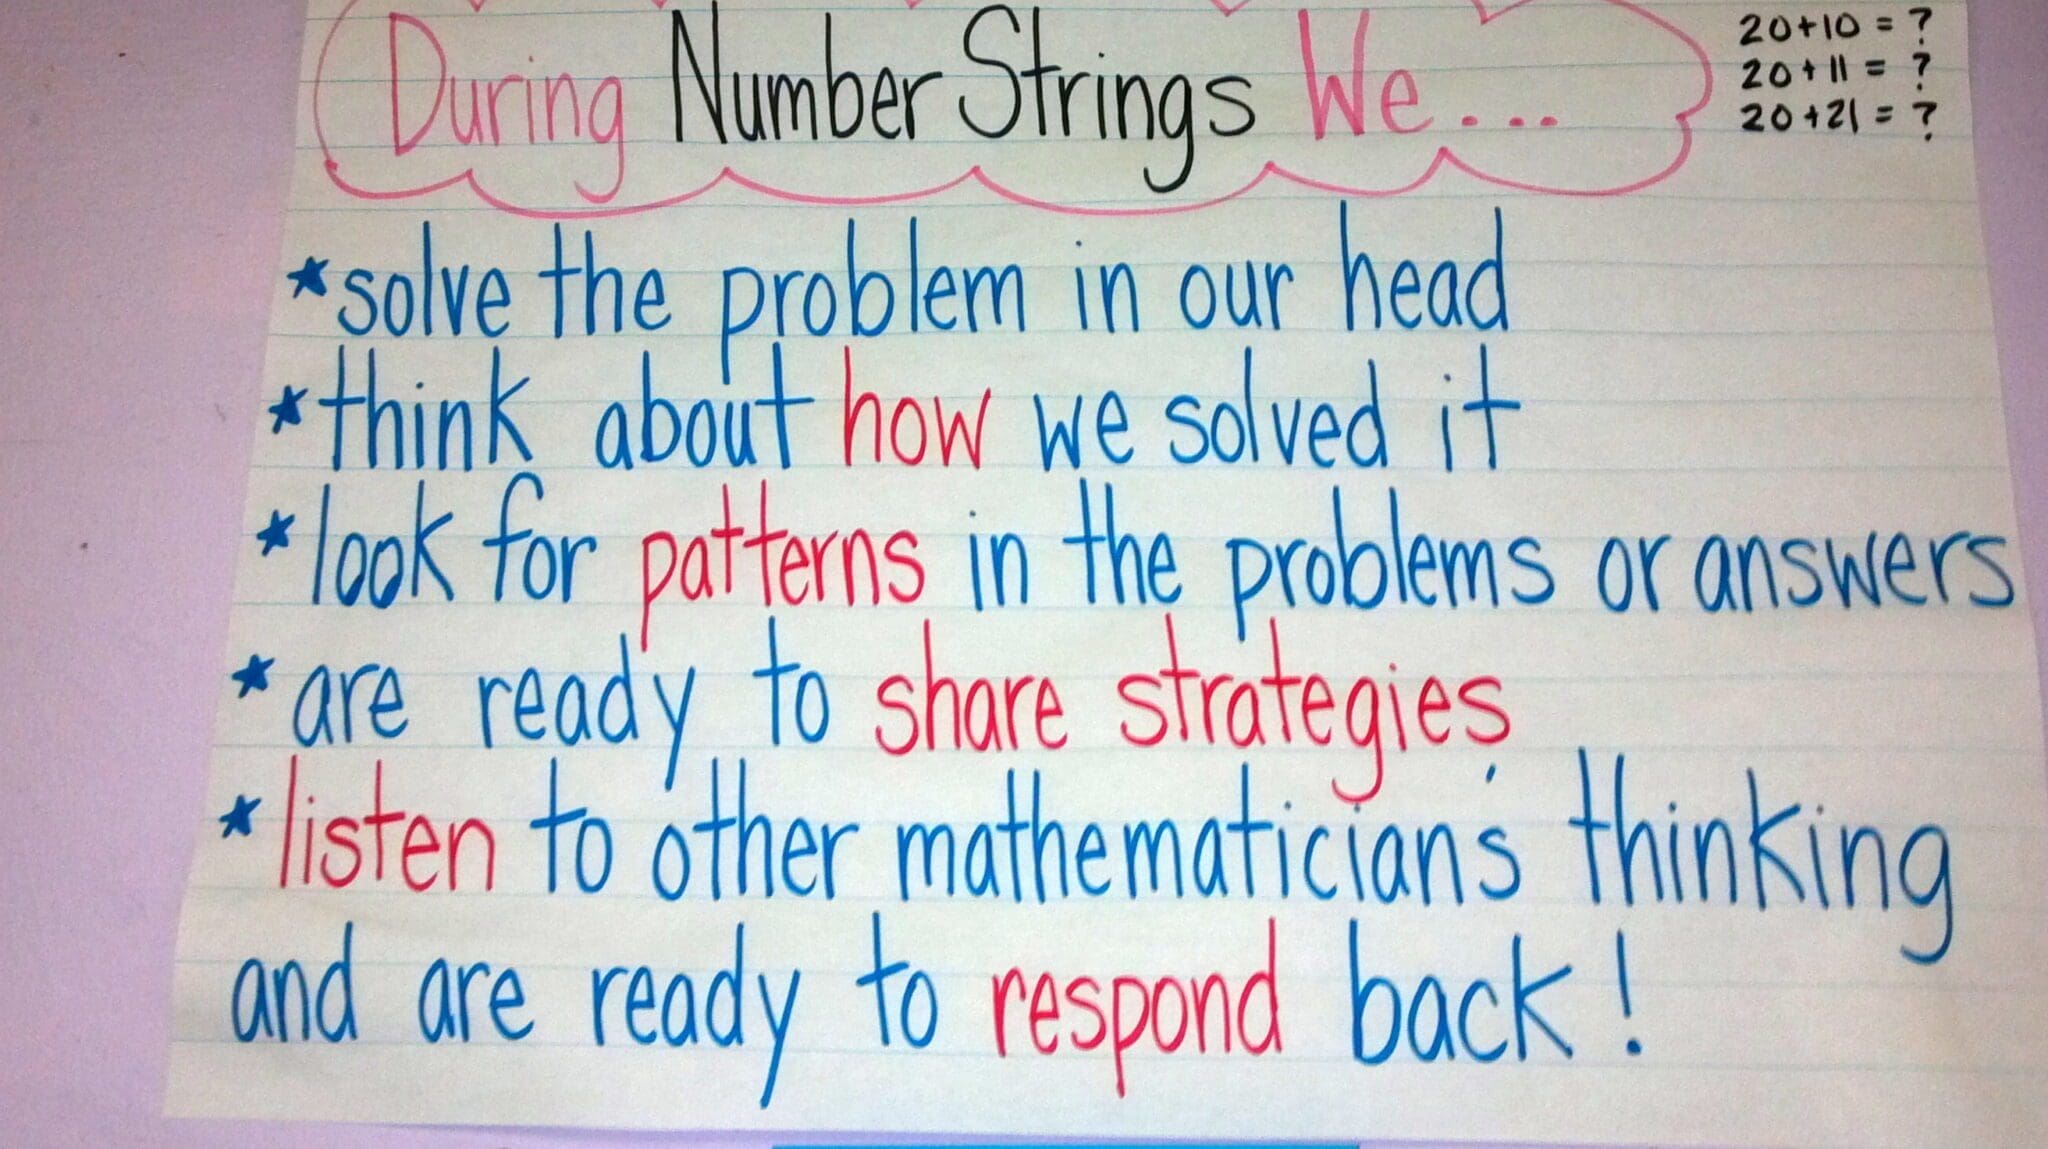 During Number Strings We...
20+10 = ?
20+11 = ?
20+21 = ?
*solve the problem in our head
*think about how we solved it
*look for patterns in the problems or answers
*are ready to share strategies
*listen to other mathematician's thinking
and are ready to respond back!